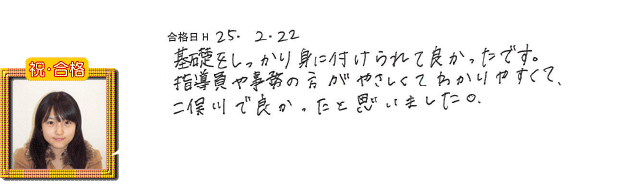 合格日 H 25. 2. 22
基礎をしっかり身に付けられて良かったです。
指導員や事務の方がやさしくてわかりやすくて、
二俣川で良かったと思いました。
祝・合格